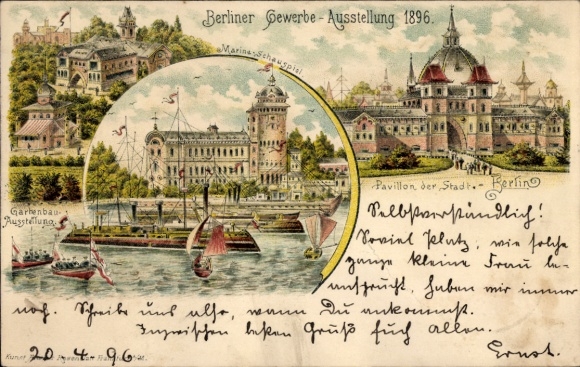 Berliner Gewerbe-Ausstellung 1896.
Marine-Schauspiel
Gartenbau-
Ausstellung.
Pavillon der Stadt Berlin
Selbstverständlich!
Soviel Platz, wie solche
ganze kleine Frau be-
ansprucht, haben wir immer
noch. Schreibe uns also, wann Du ankommst.
Inzwischen besten Gruß Euch allen.
Ernst.
20-4-96
Kunst